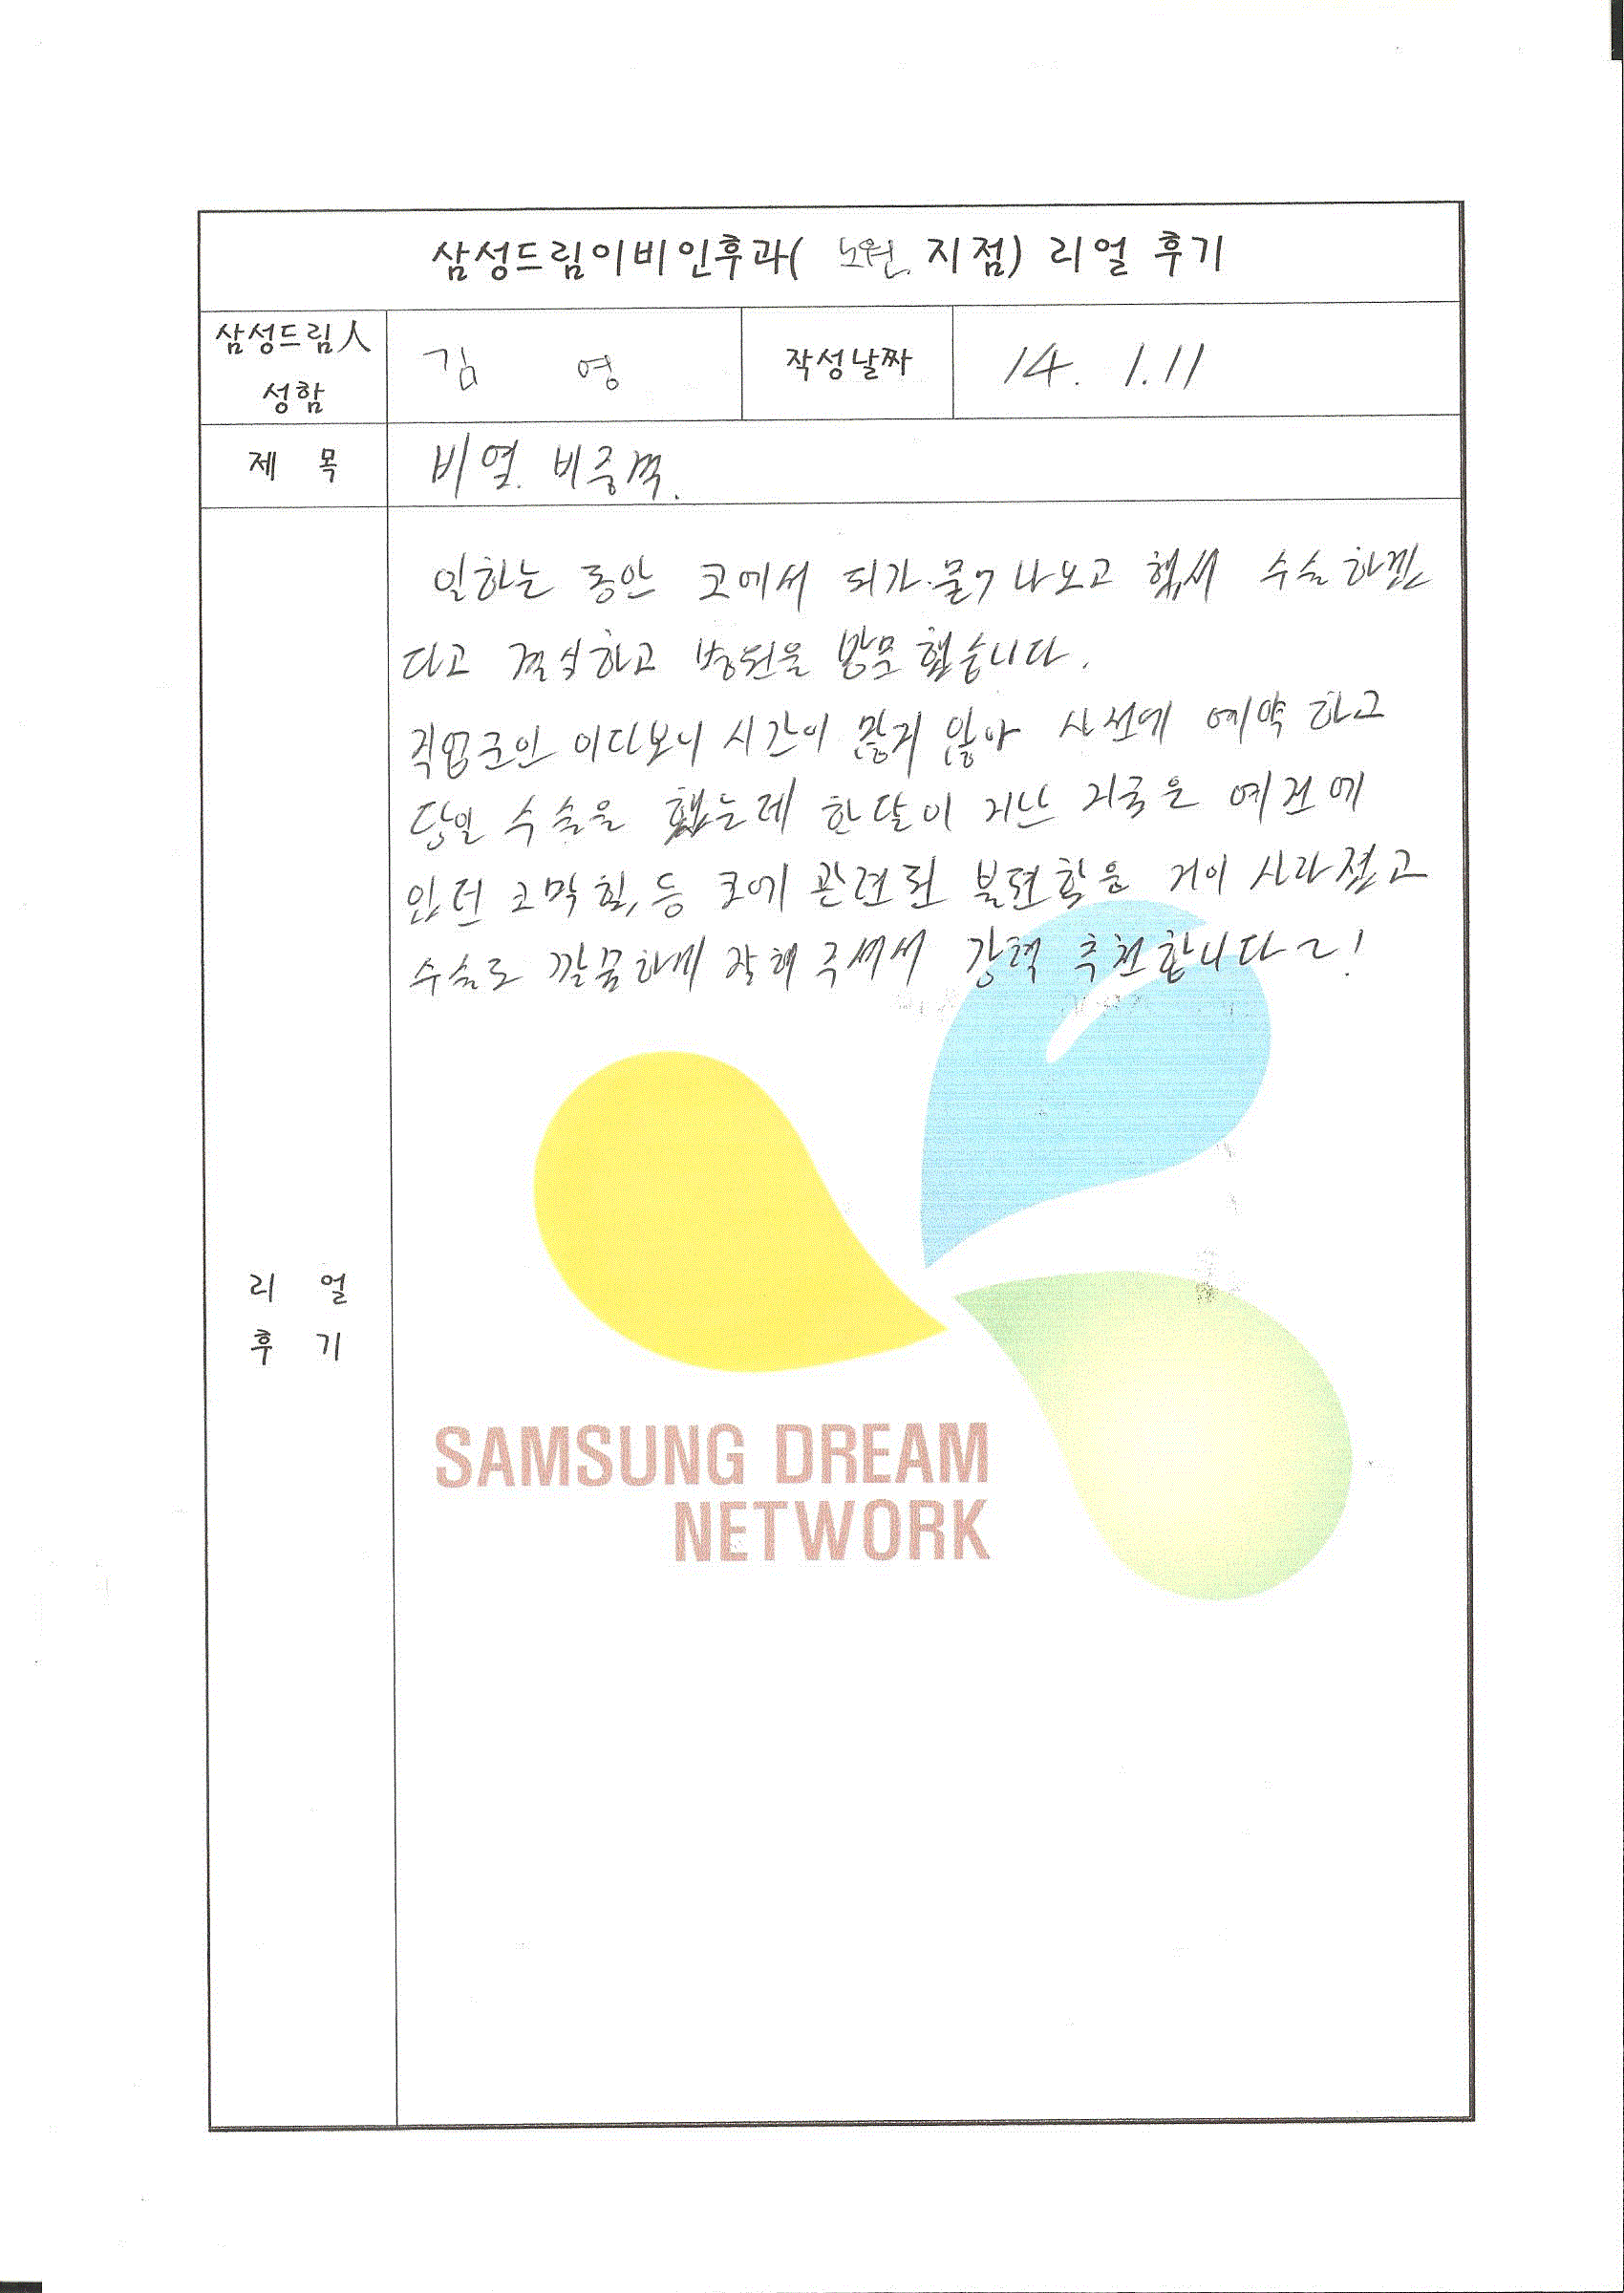 삼성드림이비인후과( 노원 지점) 리얼 후기
삼성드림人
성함
김 영
작성날짜
14. 1.11
제 목
비염. 비중격.
일하는 동안 코에서 피가 나오고 해서 수술 하겠
다고 결심하고 병원을 방문 했습니다.
직업군인 이다보니 시간이 많지 않아 사전에 예약 하고
당일 수술을 했는데 한달이 지난 지금은 예전에
있던 코막힘, 등 코에 관련된 불편함은 거이 사라졌고
수술도 깔끔하게 잘해 주셔서 강력 추천합니다~!
리 얼
후 기
SAMSUNG DREAM
NETWORK